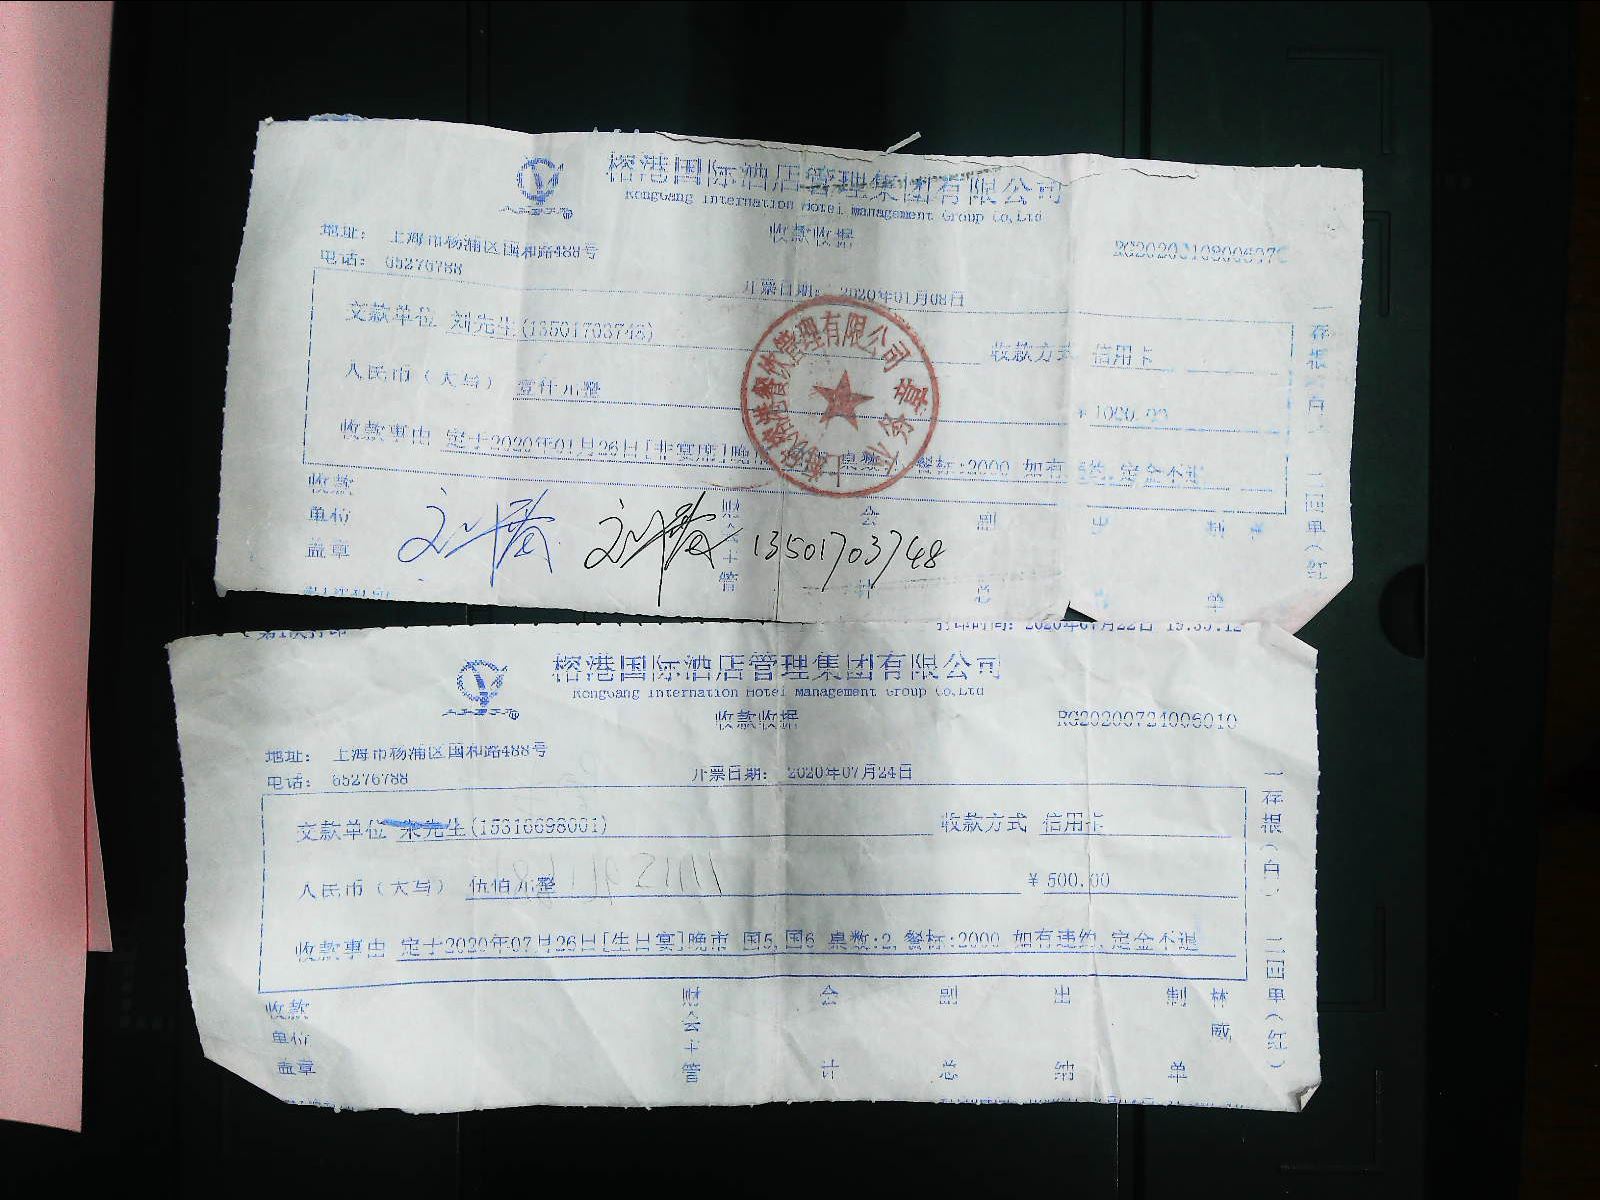 榕港国际酒店管理集团有限公司
RongGang Internation Hotel Management Group Co,Ltd
收款收据
地址： 上海市杨浦区国和路488号
电话： 65276788
开票日期： 2020年01月08日
交款单位 刘先生(13501703748) 收款方式 信用卡
人民币（大写） 壹仟元整 ¥ 1000.00
收款事由 定于2020年01月26日[非宴席]晚 桌数 餐标:2000 如有违约,定金不退
收款 财 会 副 出 制
单位 会
盖章 主
管 计 总 单
13501703748
打印时间: 2020年07月22日
榕港国际酒店管理集团有限公司
RongGang Internation Hotel Management Group Co,Ltd
收款收据
RG20200724006010
地址： 上海市杨浦区国和路488号
电话： 65276788
开票日期： 2020年07月24日
交款单位 朱先生(15316698001) 收款方式 信用卡
人民币（大写） 伍佰元整 ¥ 500.00
收款事由 定于2020年07月26日[生日宴]晚市 国5,国6 桌数:2, 餐标:2000 如有违约,定金不退
收款 财 会 副 出 制 林
单位 会 威
盖章 主
管 计 总 纳 单
一存根（白） 二回单（红）